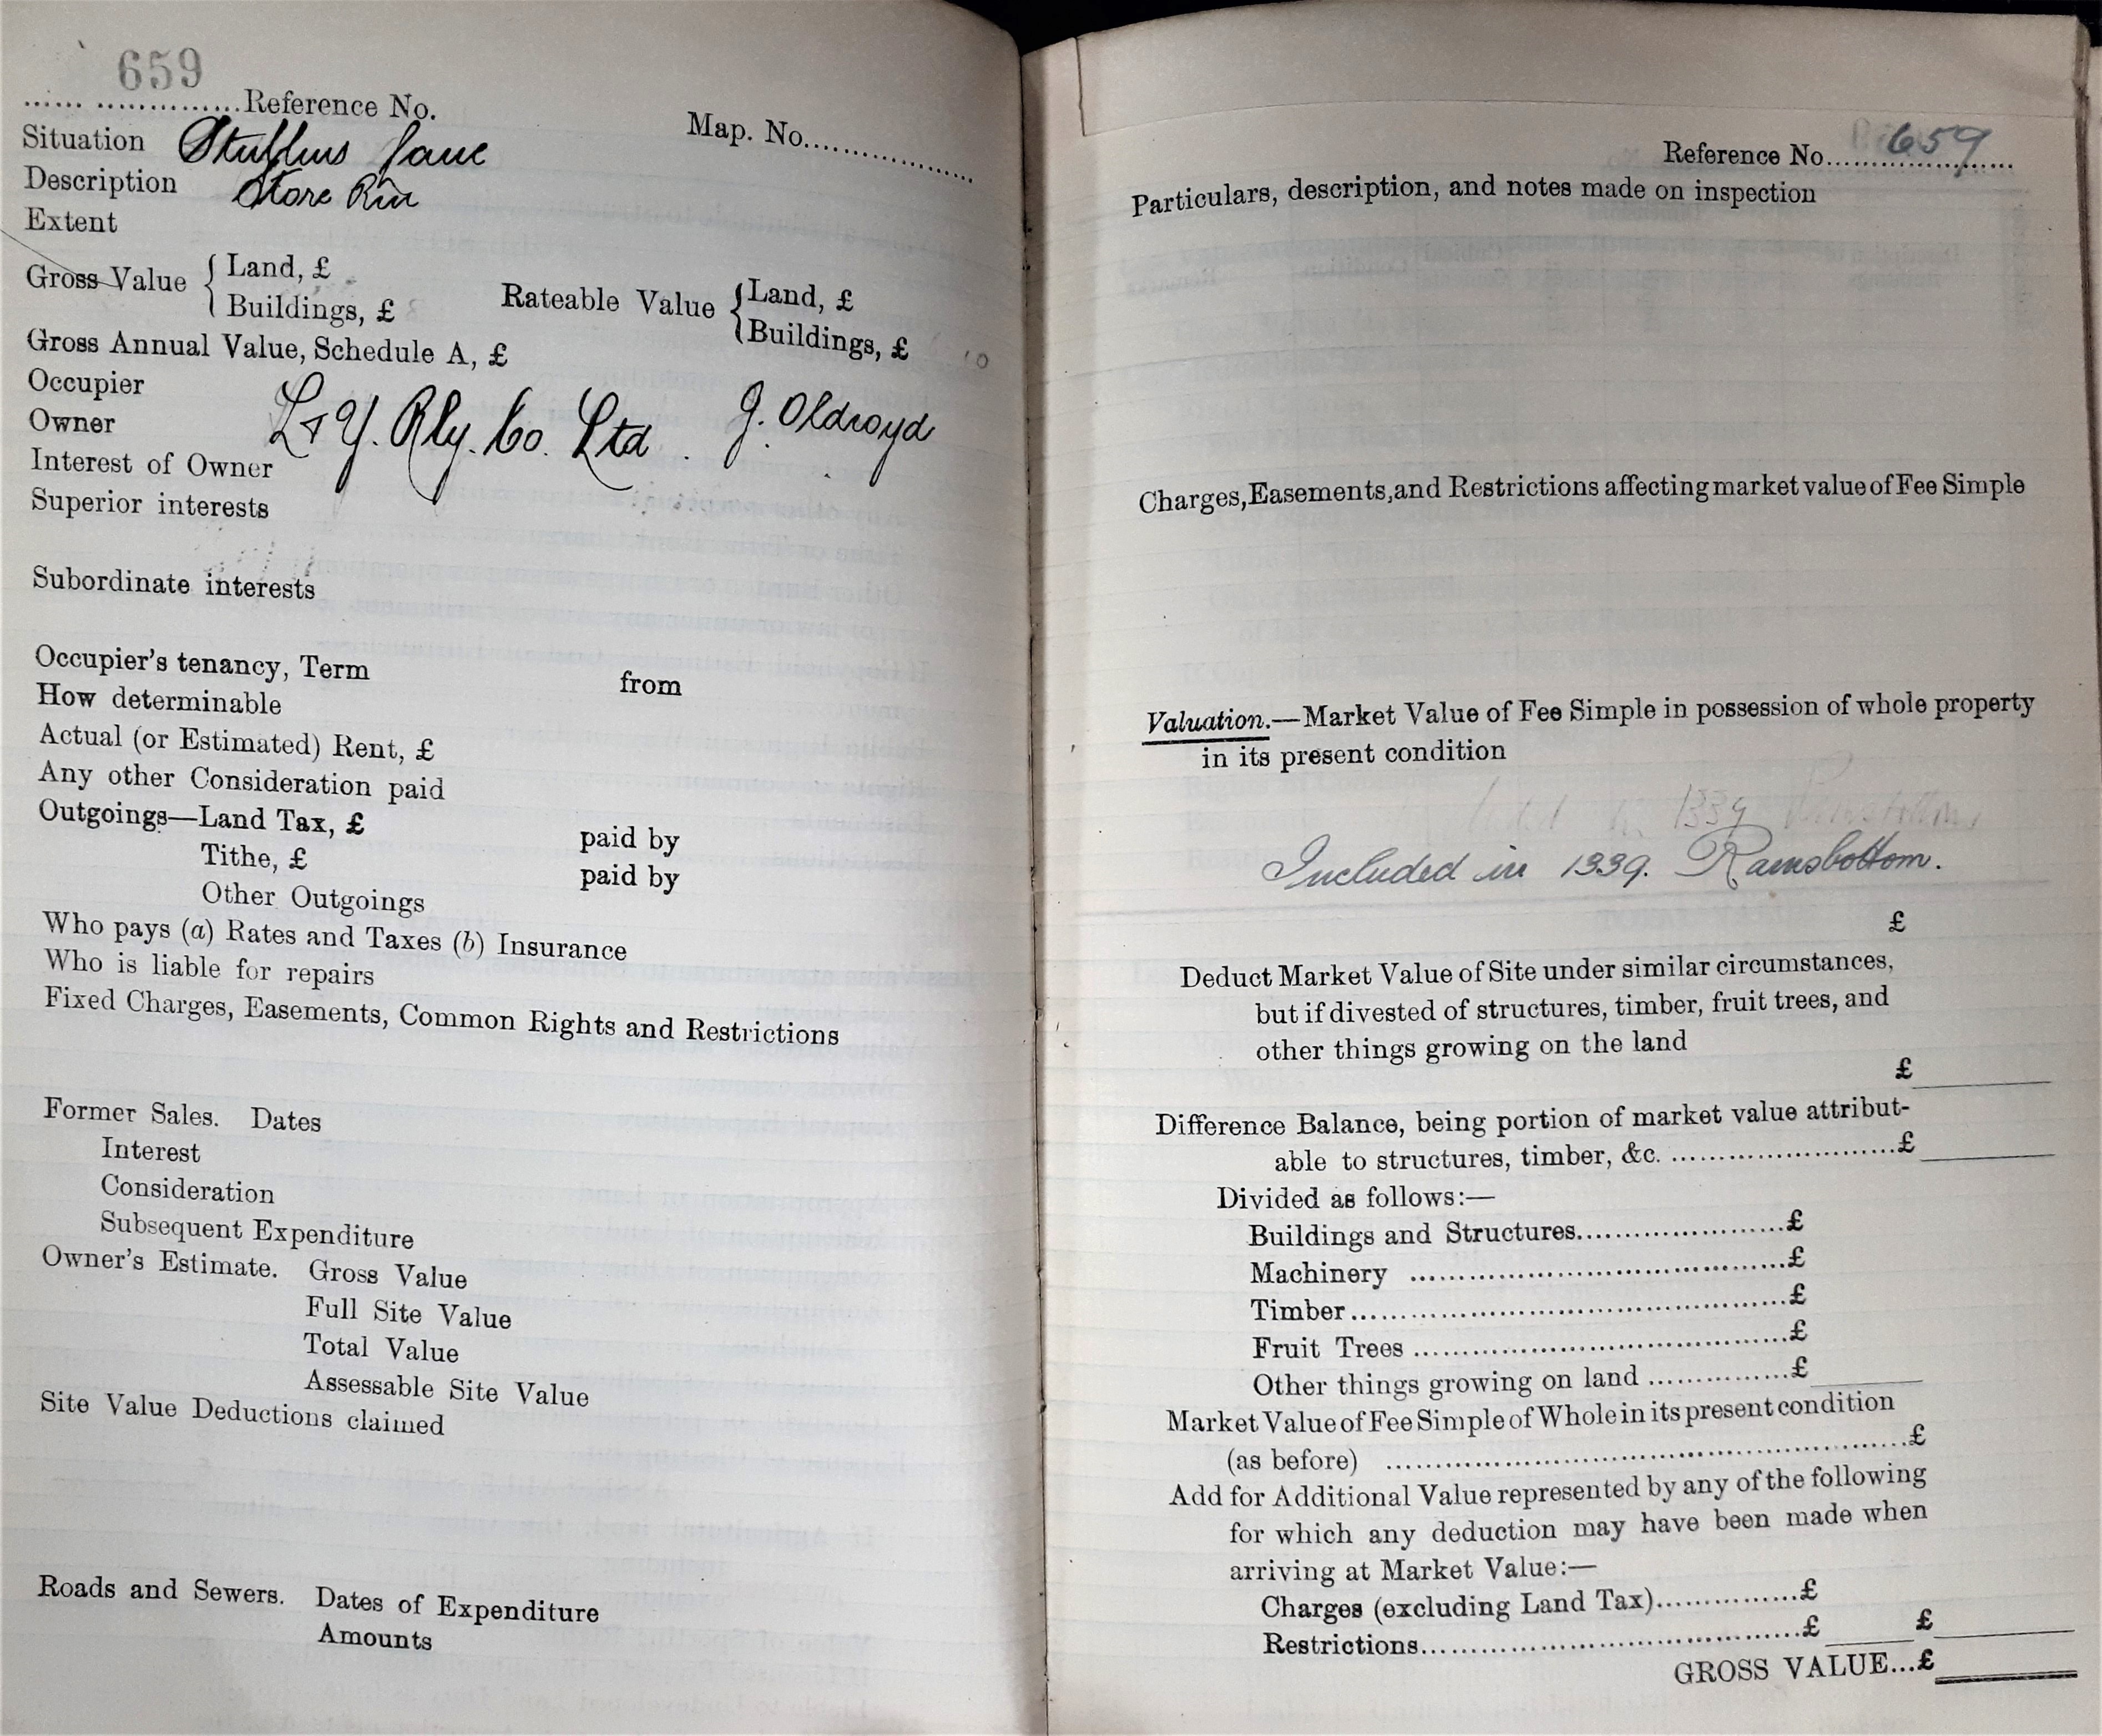 659
...... ...............Reference No.
Map. No..................
Situation Stubbins Lane
Description Store Rm
Extent
Gross Value { Land, £
Buildings, £
Rateable Value { Land, £
Buildings, £ 10
Gross Annual Value, Schedule A, £
Occupier
Owner L & Y. Rly. Co. Ltd. J. Oldroyd
Interest of Owner
Superior interests
Subordinate interests
Occupier's tenancy, Term from
How determinable
Actual (or Estimated) Rent, £
Any other Consideration paid
Outgoings—Land Tax, £ paid by
Tithe, £ paid by
Other Outgoings
Who pays (a) Rates and Taxes (b) Insurance
Who is liable for repairs
Fixed Charges, Easements, Common Rights and Restrictions
Former Sales. Dates
Interest
Consideration
Subsequent Expenditure
Owner's Estimate. Gross Value
Full Site Value
Total Value
Assessable Site Value
Site Value Deductions claimed
Roads and Sewers. Dates of Expenditure
Amounts
Reference No. 659
Particulars, description, and notes made on inspection
Charges, Easements, and Restrictions affecting market value of Fee Simple
Valuation.—Market Value of Fee Simple in possession of whole property
in its present condition
in 1339 Ramsbottom
Included in 1339. Ramsbottom.
£
Deduct Market Value of Site under similar circumstances,
but if divested of structures, timber, fruit trees, and
other things growing on the land
£
Difference Balance, being portion of market value attribut-
able to structures, timber, &c. ..........................£
Divided as follows:—
Buildings and Structures.........................£
Machinery .............................................£
Timber....................................................£
Fruit Trees .............................................£
Other things growing on land .................£
Market Value of Fee Simple of Whole in its present condition
(as before) ...............................................................£
Add for Additional Value represented by any of the following
for which any deduction may have been made when
arriving at Market Value:—
Charges (excluding Land Tax).................£
Restrictions..............................................£ £
GROSS VALUE...£